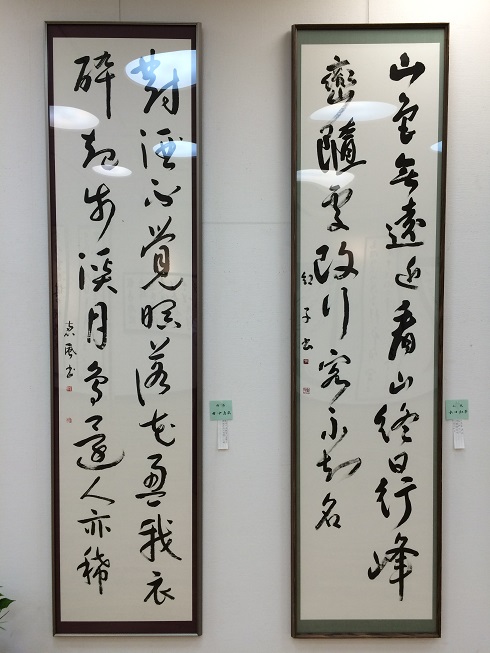 山色無遠近看山終日行峰
巒隨處改行客不知名
子書
對酒不覺暝落花盈我衣
醉起步溪月鳥還人亦稀
書